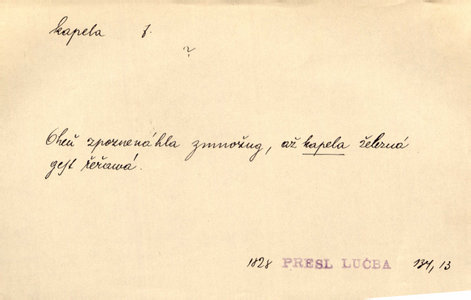 kapela f.
?
Oheň zponenáhla zmnožug, až kapela železná
gest řeřawá.
1828 PRESL LUČBA 134, 13